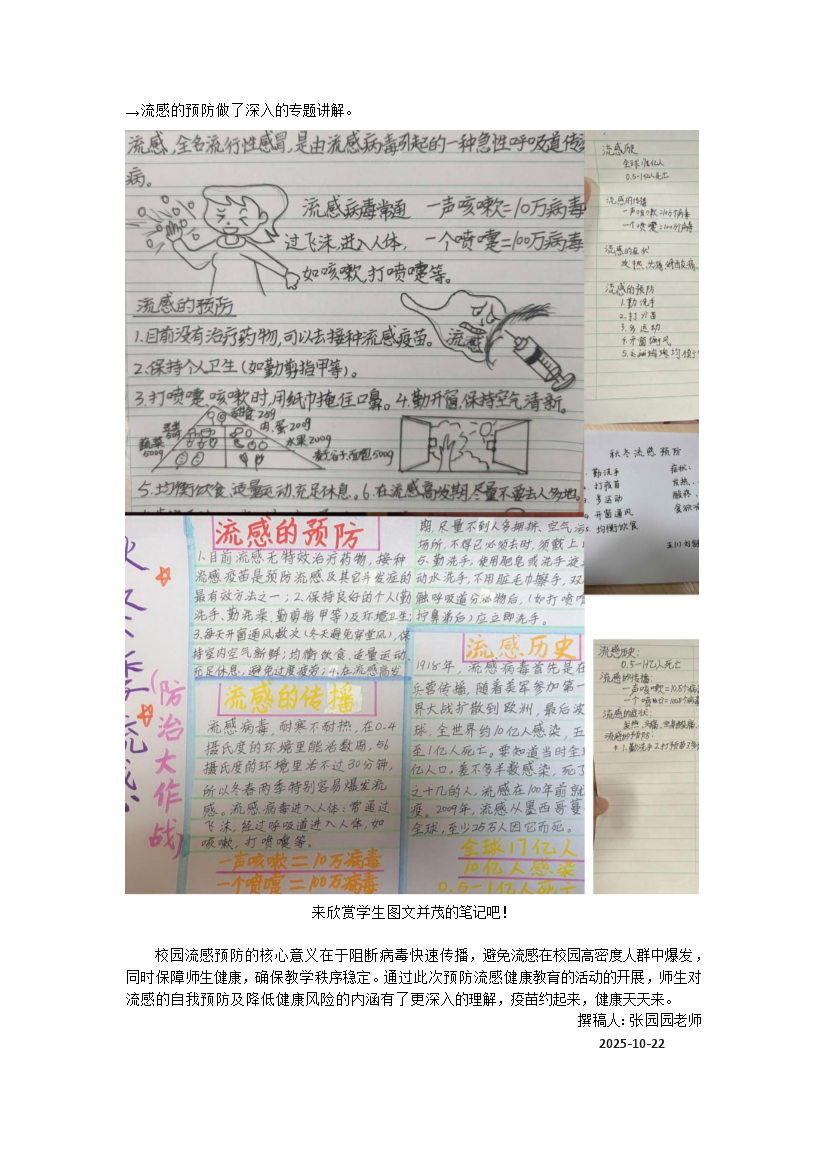 →流感的预防做了深入的专题讲解。
流感,全名流行性感冒,是由流感病毒引起的一种急性呼吸道传
病。
流感病毒常通
过飞沫,进入人体,
如咳嗽,打喷嚏等。
一声咳嗽=10万病毒
一个喷嚏=100万病毒
流感的预防
流感
1.目前没有治疗药物,可以去接种流感疫苗。
2.保持个人卫生(如勤剪指甲等)。
3.打喷嚏、咳嗽时,用纸巾掩住口鼻。4.勤开窗,保持空气清新。
甜食25g
肉、蛋200g
蔬菜
500g
水果200g
5.均衡饮食,适量运动,充足休息。6.在流感高发期,尽量不要去人多地
流感的传播
流感的症状
流感的预防
1.勤洗手
3.多运动
4.开窗通风
秋冬流感预防
勤洗手
打疫苗
多运动
开窗通风
均衡饮食
症状:
发热、
防治大作战
流感的预防
1.目前流感无特效治疗药物,接种
流感疫苗是预防流感及其它并发症的
最有效方法之一;2.保持良好的个人(勤
洗手、勤洗澡、勤剪指甲等)及环境卫生;
3.每天开窗通风数次(冬天避免穿堂风),保
持室内空气新鲜;均衡饮食、适量运动、
充足休息,避免过度疲劳;4.在流感高发
期,尽量不到人多拥挤、空气污
场所,不得已必须去时,须戴上口
5.勤洗手,使用肥皂或洗手液
动水洗手,不用脏毛巾擦手,双
触呼吸道分泌物后,(如打喷嚏
拧鼻涕后)应立即洗手。
流感的传播
流感病毒,耐寒不耐热,在0.4
摄氏度的环境里能活数周,56
摄氏度的环境里活不过30分钟,
所以冬春两季特别容易爆发流
感。流感病毒进入人体:常通过
飞沫,经过呼吸道进入人体,如
咳嗽,打喷嚏等。
一声咳嗽=10万病毒
一个喷嚏=100万病毒
流感历史
1918年,流感病毒首先是在
兵营传播,随着美军参加第一
界大战扩散到欧洲,最后波
球,全世界约10亿人感染,五
至1亿人死亡。要知道当时全球
亿人口,差不多半数感染,死了
之十几的人,流感在100年前就
疫。2009年,流感从墨西哥蔓
全球,至少25万人因它而死。
全球17亿人
10亿人感染
0.5-1亿人死亡
流感历史:
0.5-1亿人死亡
流感的传播:
流感的症状:
流感的预防:
来欣赏学生图文并茂的笔记吧!
校园流感预防的核心意义在于阻断病毒快速传播,避免流感在校园高密度人群中爆发,
同时保障师生健康,确保教学秩序稳定。通过此次预防流感健康教育的活动的开展,师生对
流感的自我预防及降低健康风险的内涵有了更深入的理解,疫苗约起来,健康天天来。
撰稿人:张园园老师
2025-10-22